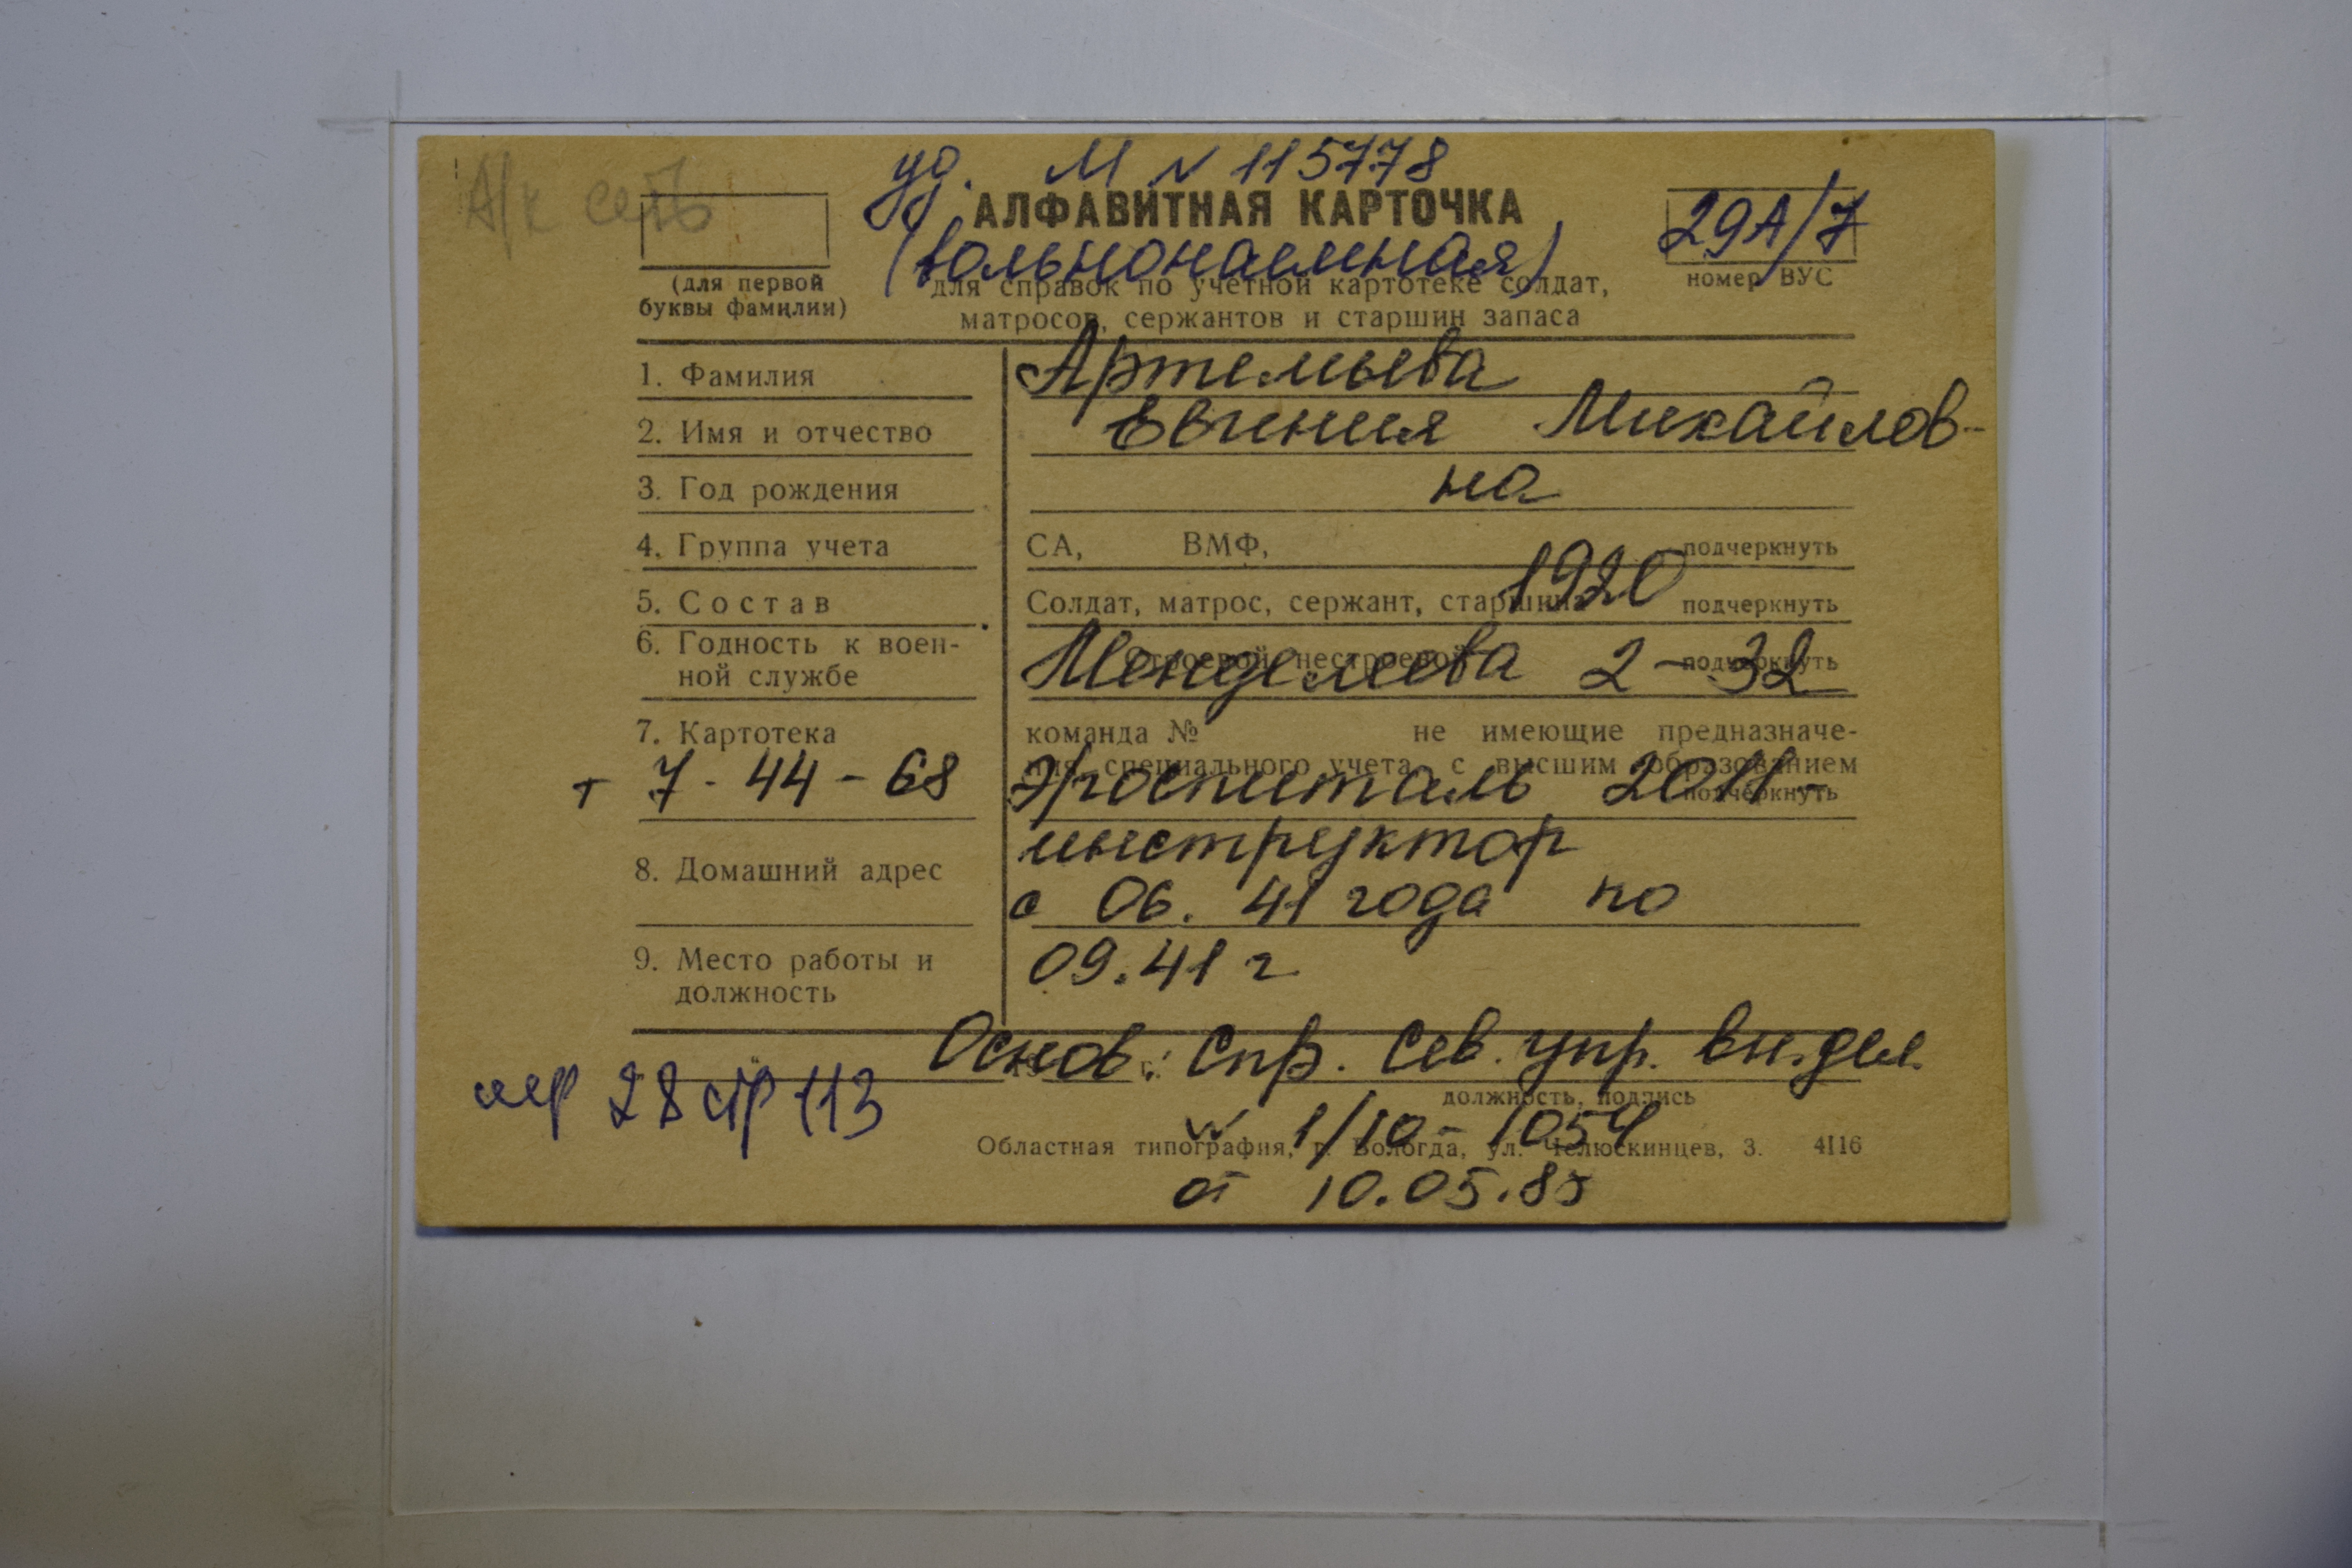 А/к есть
уд. М № 115778
АЛФАВИТНАЯ КАРТОЧКА
(вольнонаемная)
29А/7
(для первой
буквы фамилии)
для справок по учетной картотеке солдат,
матросов, сержантов и старшин запаса
номер ВУС
1. Фамилия
Артемьева
2. Имя и отчество
Евгения Михайлов-
3. Год рождения
на
4. Группа учета
СА, ВМФ, подчеркнуть
5. Состав
Солдат, матрос, сержант, старшина подчеркнуть
1920
6. Годность к воен-
ной службе
Строевой, нестроевой подчеркнуть
Менделеева 2-32
7. Картотека
команда № не имеющие предназначе-
ния, специального учета, с высшим образованием
подчеркнуть
т 7-44-68
Э/госпиталь 2011-
инструктор
8. Домашний адрес
с 06.41 года по
9. Место работы и
должность
09.41 г
Основ: Спр. Сев. упр. вн. дел
19 г.
должность, подпись
28 стр 113
№ 1/10-1054
Областная типография, г. Вологда, ул. Челюскинцев, 3. 4116
от 10.05.85